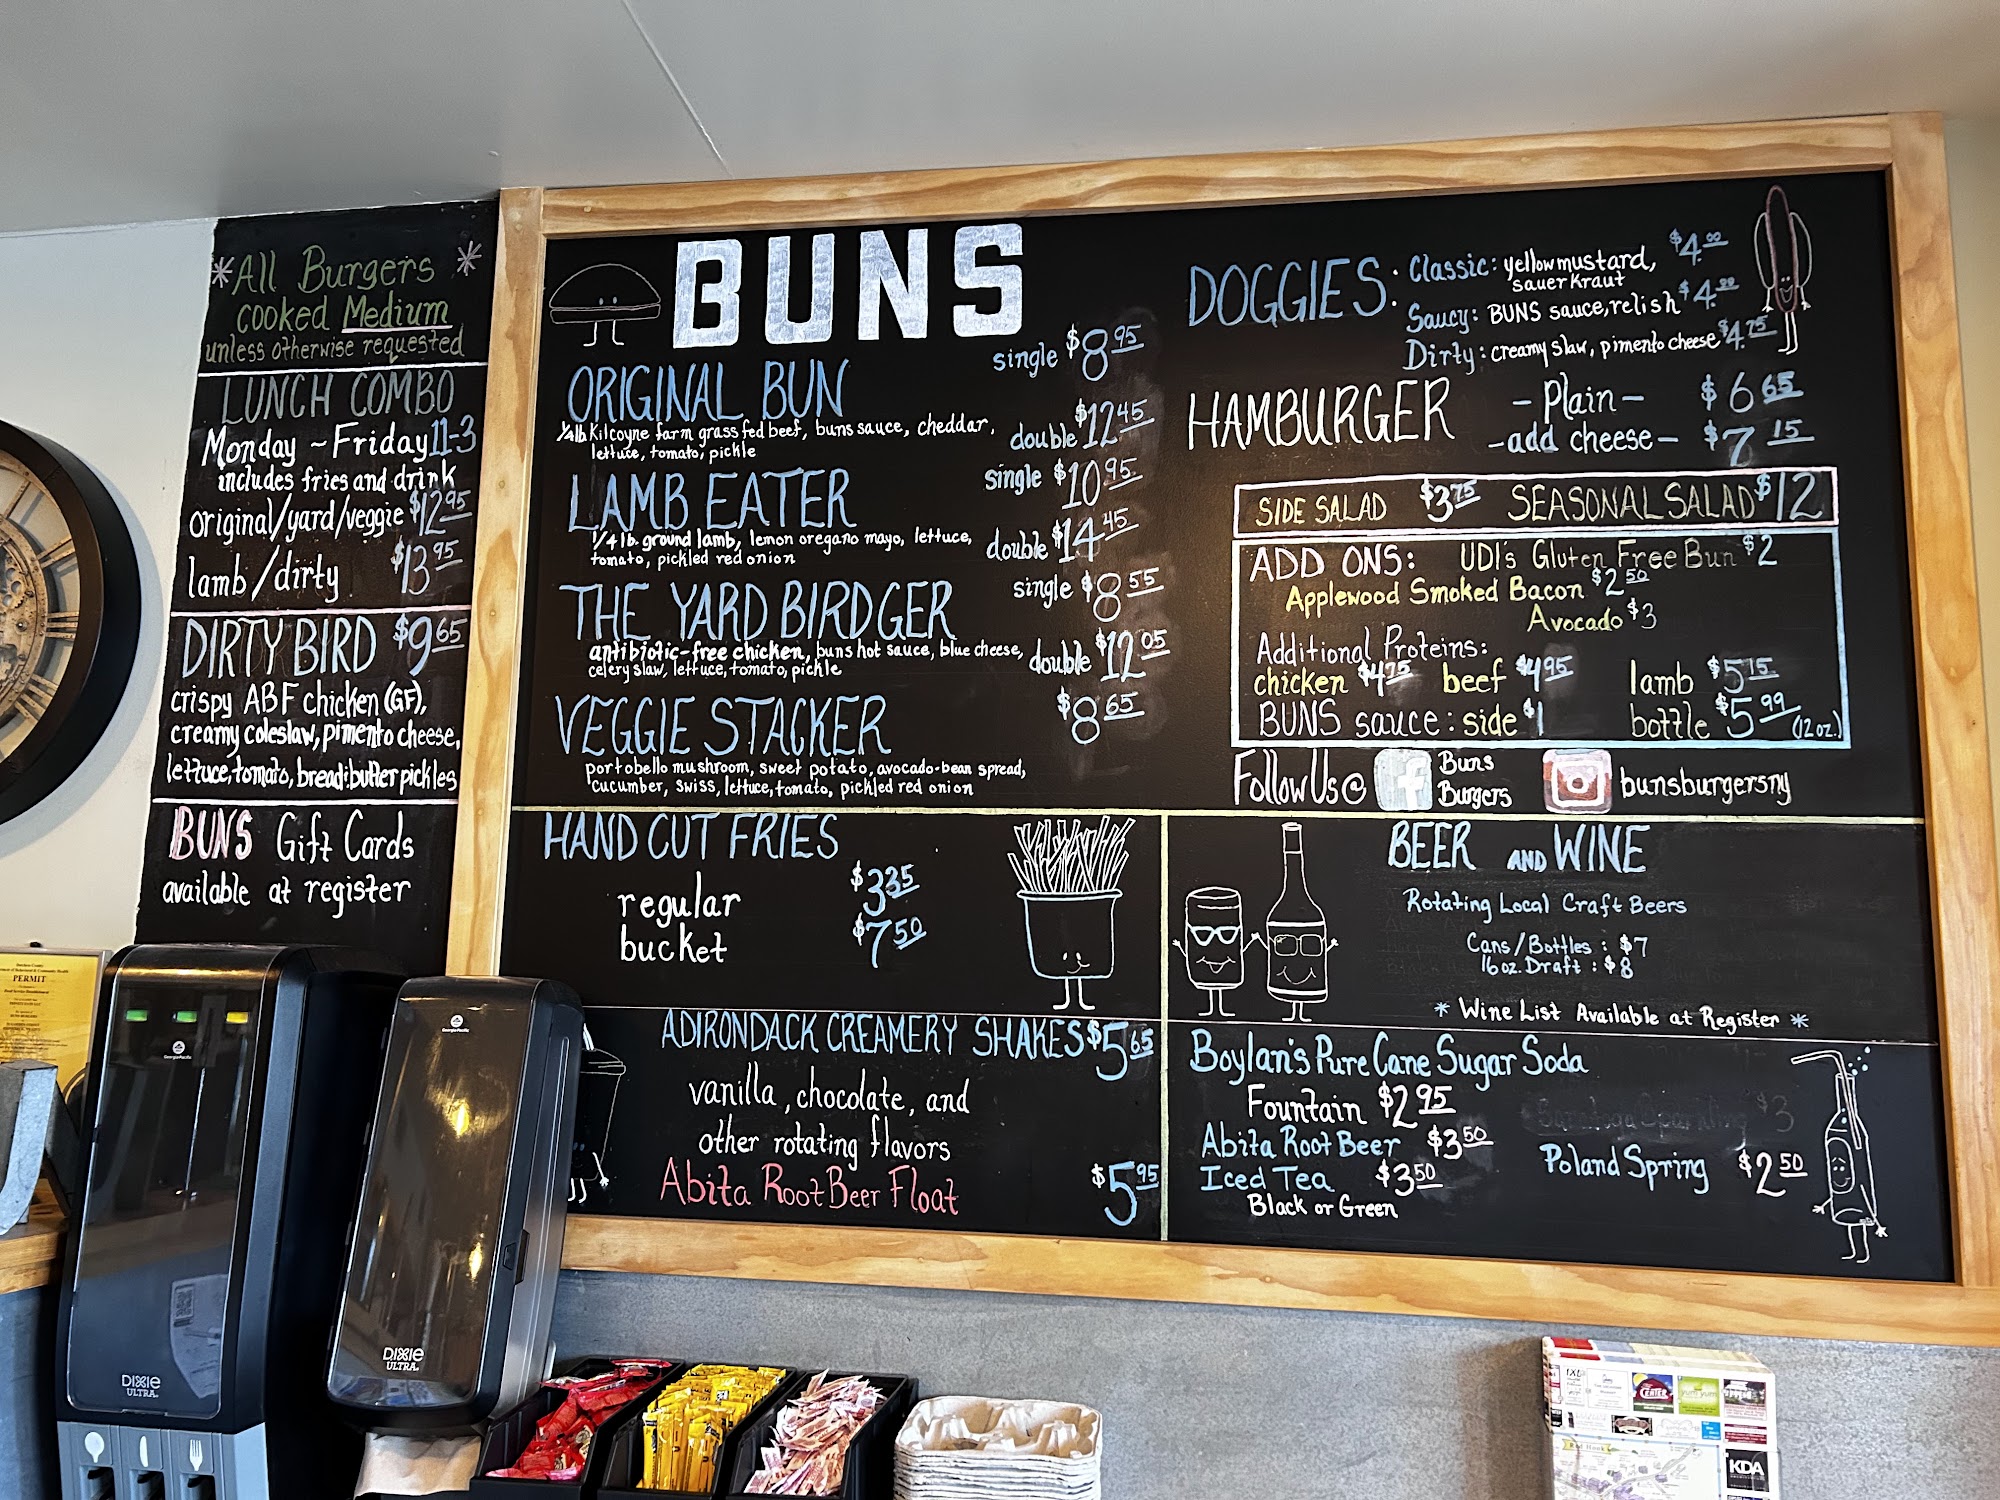 *All Burgers*
cooked Medium
unless otherwise requested
LUNCH COMBO
Monday ~ Friday 11-3
includes fries and drink
original/yard/veggie $12.95
lamb/dirty $13.95
DIRTY BIRD $9.65
crispy ABF chicken (GF),
creamy coleslaw, pimento cheese,
lettuce, tomato, bread & butter pickles
BUNS Gift Cards
available at register
BUNS
ORIGINAL BUN single $8.95
1/4 lb Kilcoyne farm grass fed beef, buns sauce, cheddar,
lettuce, tomato, pickle
double $12.45
LAMB EATER single $10.95
1/4 lb. ground lamb, lemon oregano mayo, lettuce,
tomato, pickled red onion
double $14.45
THE YARD BIRDGER single $8.55
antibiotic-free chicken, buns hot sauce, blue cheese,
celery slaw, lettuce, tomato, pickle
double $12.05
VEGGIE STACKER $8.65
portobello mushroom, sweet potato, avocado-bean spread,
cucumber, swiss, lettuce, tomato, pickled red onion
DOGGIES: Classic: yellow mustard, $4.00
sauerkraut
Saucy: BUNS sauce, relish $4.00
Dirty: creamy slaw, pimento cheese $4.75
HAMBURGER -Plain- $6.65
-add cheese- $7.15
SIDE SALAD $3.75 SEASONAL SALAD $12
ADD ONS: UDI's Gluten Free Bun $2
Applewood Smoked Bacon $2.50
Avocado $3
Additional Proteins:
chicken $4.75 beef $4.95 lamb $5.15
BUNS sauce: side $1 bottle $5.99 (12oz.)
Follow Us @ f Buns
Burgers
bunsburgersny
HAND CUT FRIES
regular $3.35
bucket $7.50
BEER AND WINE
Rotating Local Craft Beers
Cans/Bottles: $7
16oz. Draft: $8
* Wine List Available at Register *
ADIRONDACK CREAMERY SHAKES $5.65
vanilla, chocolate, and
other rotating flavors
Abita Root Beer Float $5.95
Boylan's Pure Cane Sugar Soda
Fountain $2.95
Abita Root Beer $3.50
Iced Tea $3.50
Black or Green
$3
Poland Spring $2.50
PERMIT
Georgia-Pacific
DIXIE
ULTRA
Georgia-Pacific
DIXIE
ULTRA
KDA